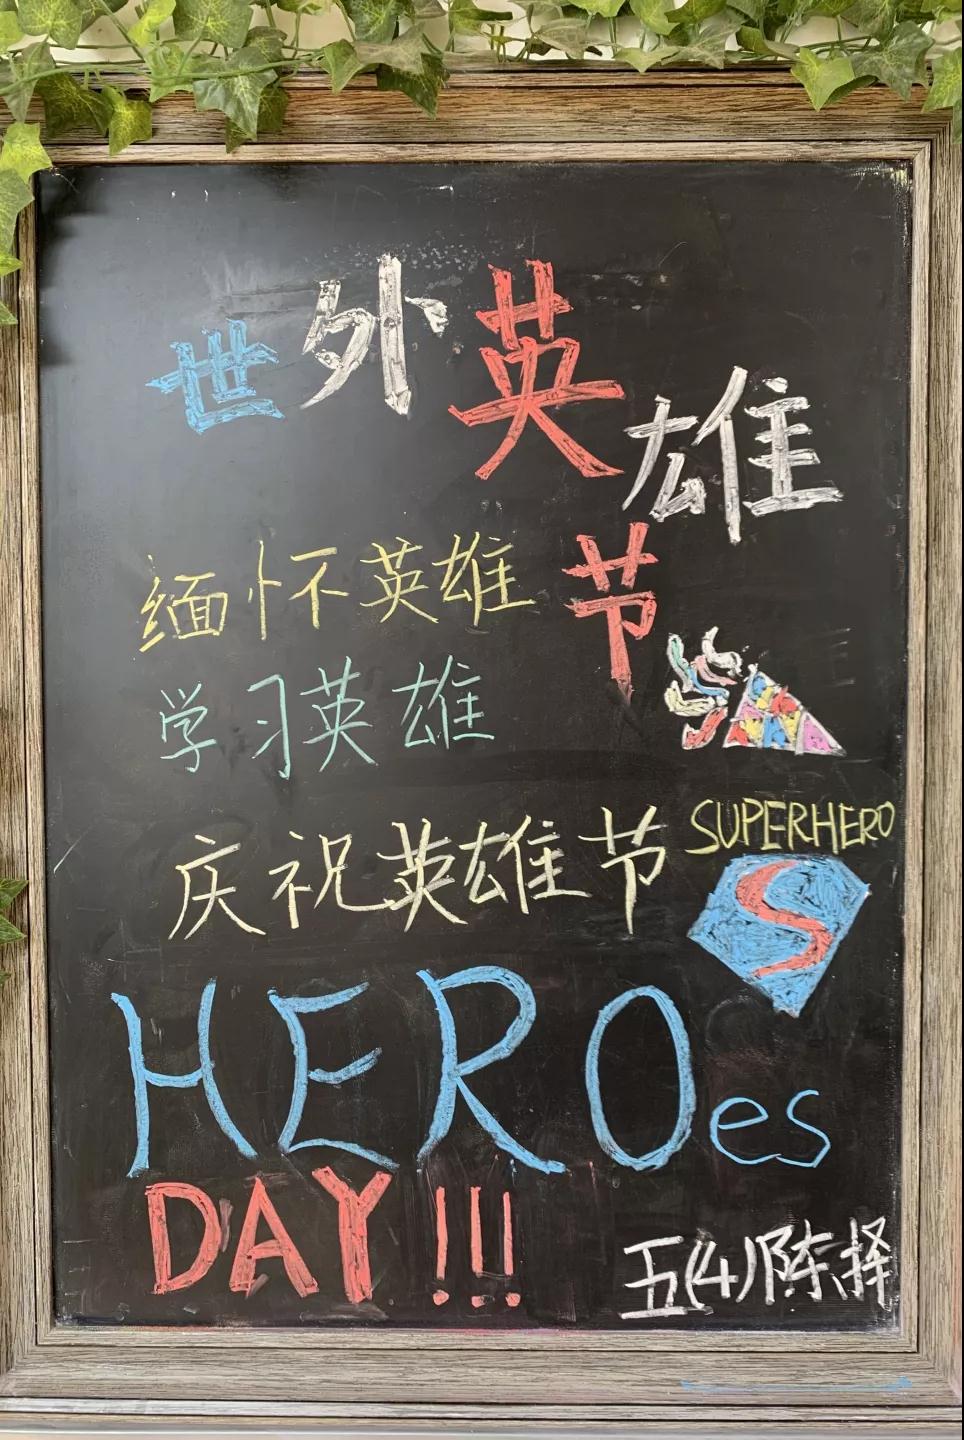 世外英雄节
缅怀英雄
学习英雄
庆祝英雄节
SUPERHERO
S
HEROes
DAY!!!
五(4)陈择